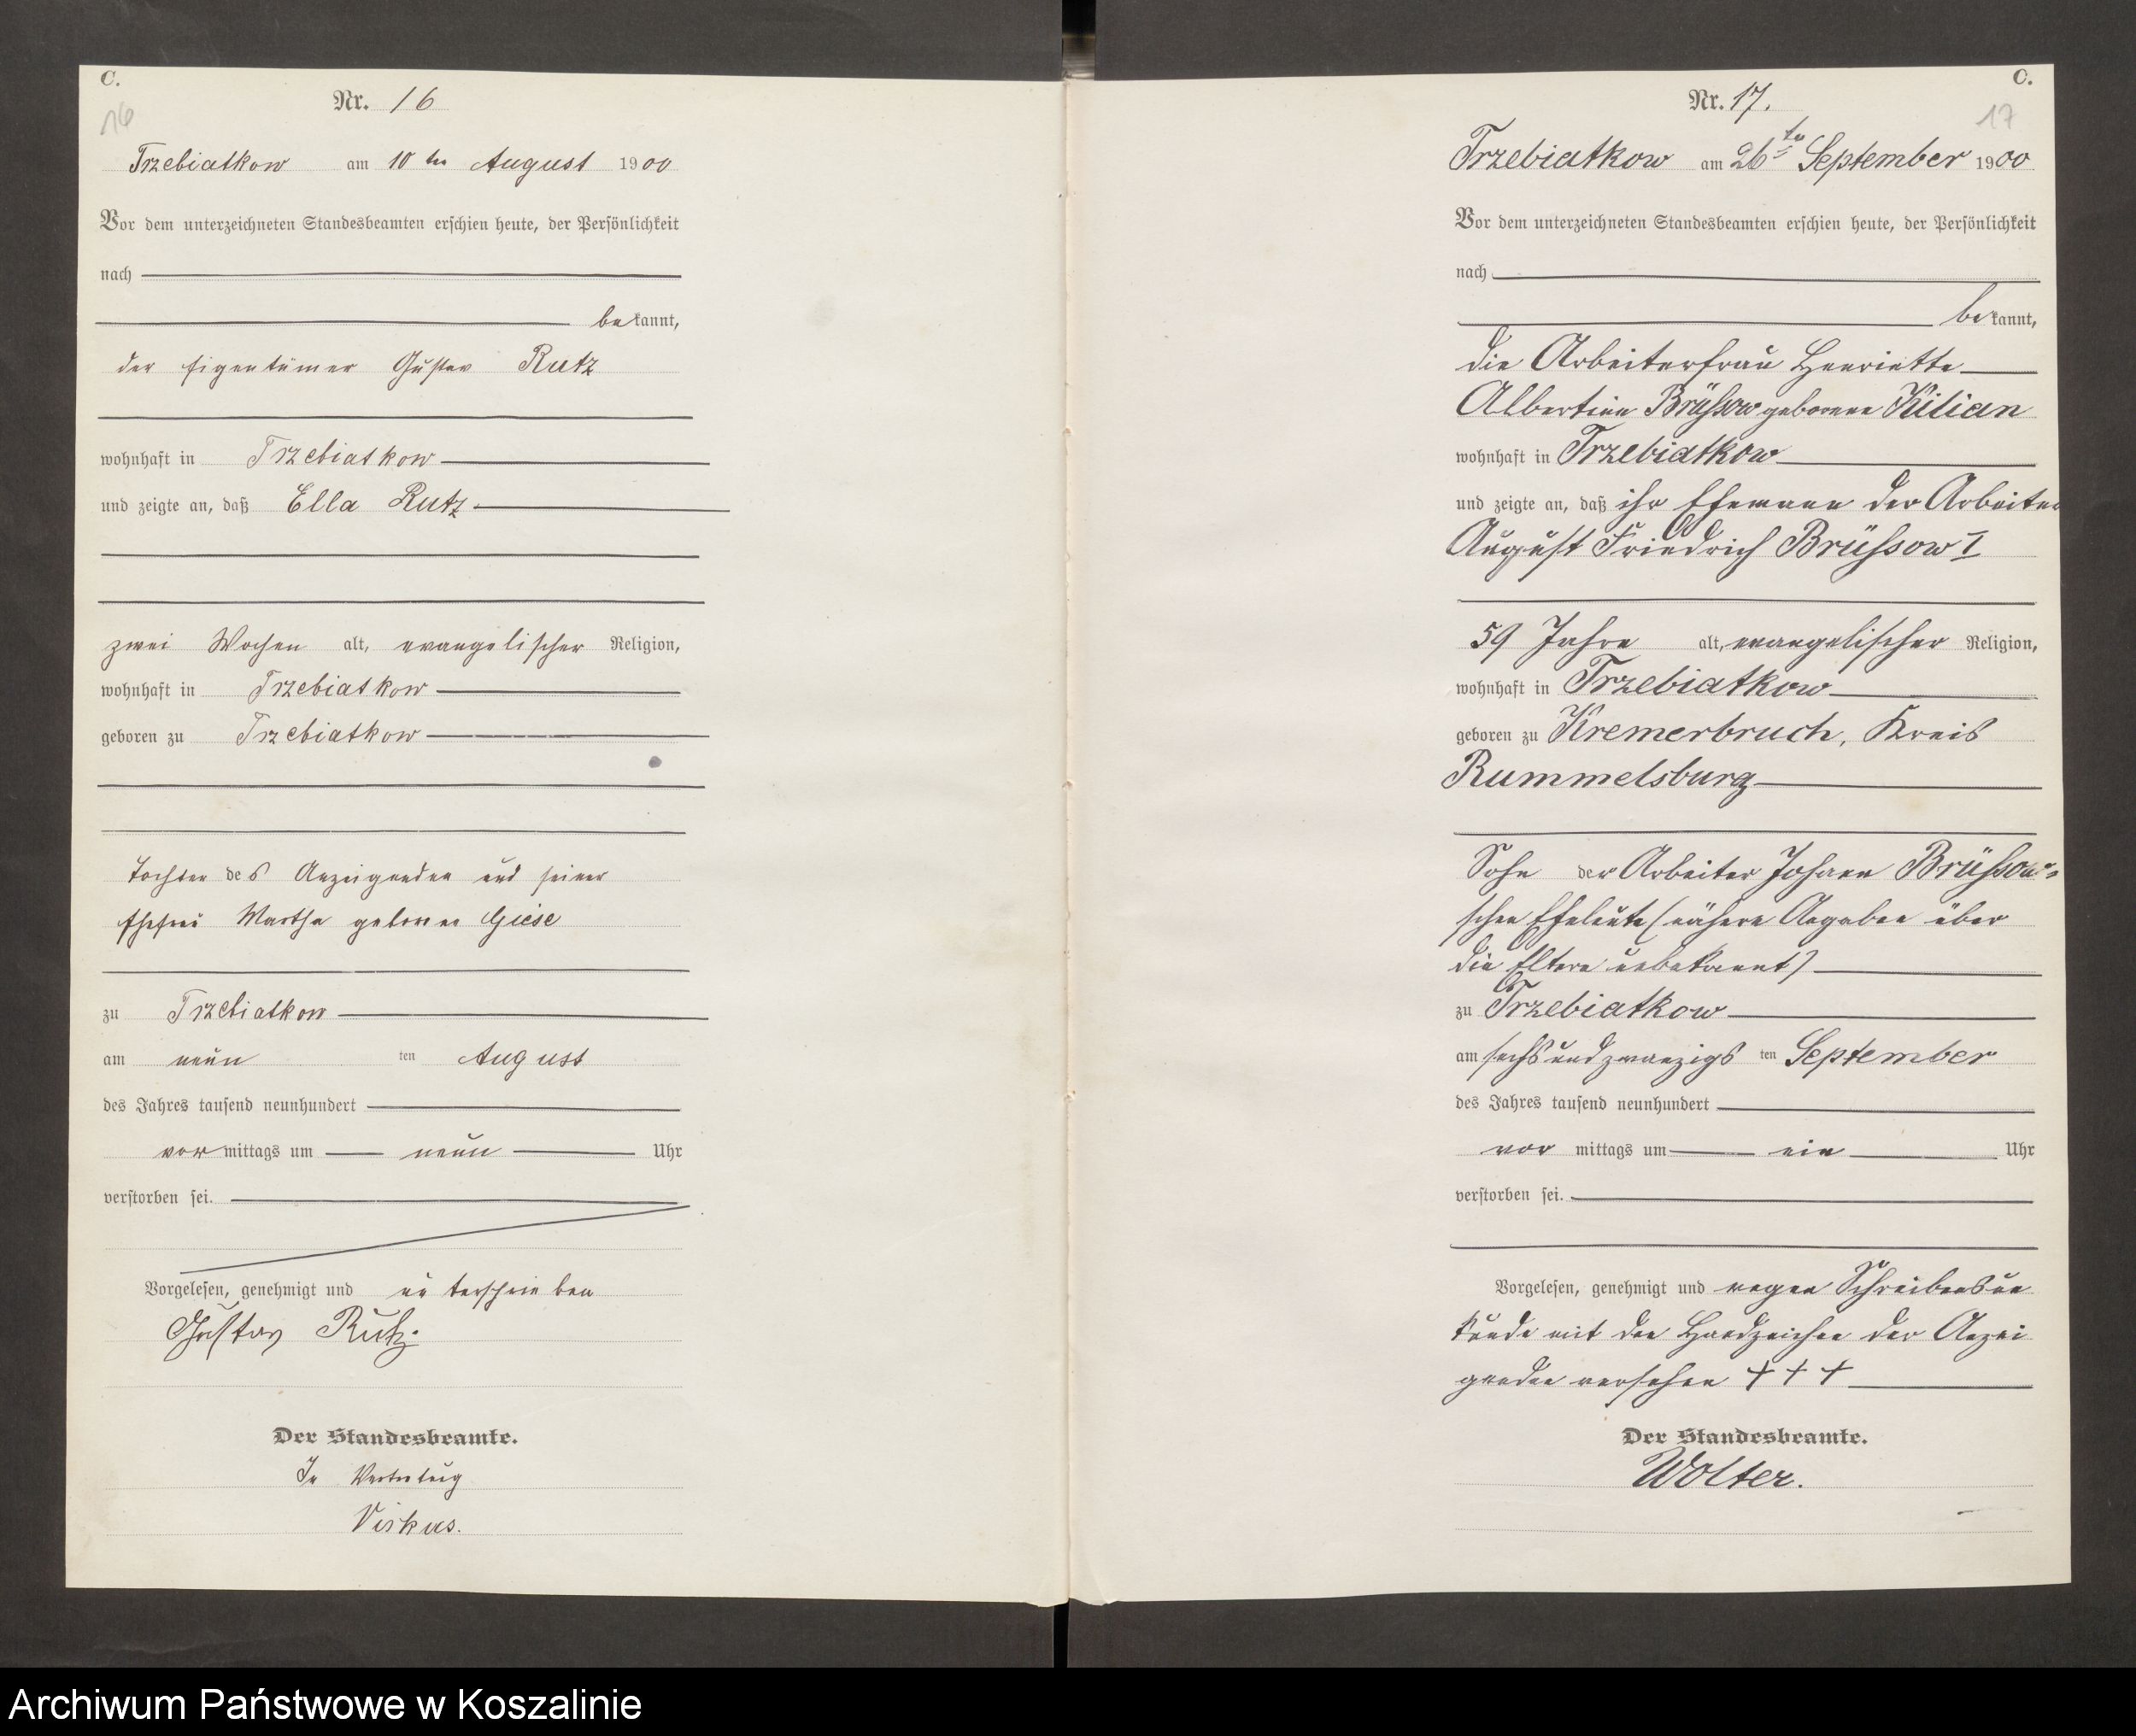 C.
16
Nr. 16
Trzebiatkow am 10ten August 1900
Vor dem unterzeichneten Standesbeamten erschien heute, der Persönlichkeit
nach
bekannt,
der Eigentümer Gustav Rutz
wohnhaft in Trzebiatkow
und zeigte an, daß Ella Rutz
zwei Wochen alt, evangelischer Religion,
wohnhaft in Trzebiatkow
geboren zu Trzebiatkow
Tochter des Anzeigenden und seiner
Ehefrau Martha geborner Giese
zu Trzebiatkow
am neun ten August
des Jahres tausend neunhundert
vor mittags um neun Uhr
verstorben sei.
Vorgelesen, genehmigt und unterschrieben
Gustav Rutz.
Der Standesbeamte.
In Vertretung
Viskus.
C.
17
Nr. 17.
Trzebiatkow am 26ten September 1900
Vor dem unterzeichneten Standesbeamten erschien heute, der Persönlichkeit
nach
bekannt,
die Arbeiterfrau Henriette
Albertine Brüssow geborene Kilian
wohnhaft in Trzebiatkow
und zeigte an, daß ihr Ehemann der Arbeiter
August Friedrich Brüssow I
59 Jahre alt, evangelischer Religion,
wohnhaft in Trzebiatkow
geboren zu Kremerbruch, Kreis
Rummelsburg
Sohn der Arbeiter Johann Brüssow-
schen Eheleute (nähere Angaben über
die Eltern unbekannt)
zu Trzebiatkow
am sechsundzwanzigs ten September
des Jahres tausend neunhundert
vor mittags um ein Uhr
verstorben sei.
Vorgelesen, genehmigt und wegen Schreibensun
kunde mit den Handzeichen der Anzei
genden versehen † † †
Der Standesbeamte.
Wolter.
Archiwum Państwowe w Koszalinie